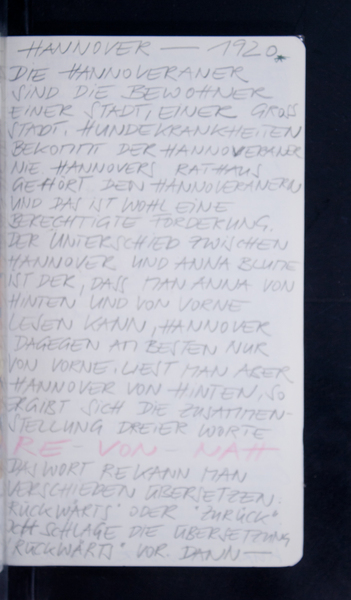 HANNOVER — 1920
DIE HANNOVERANER
SIND DIE BEWOHNER
EINER STADT, EINER GROSS
STADT. HUNDEKRANKHEITEN
BEKOMMT DER HANNOVERANER
NIE. HANNOVERS RATHAUS
GEHÖRT DEN HANNOVERANERN
UND DAS IST WOHL EINE
BERECHTIGTE FORDERUNG.
DER UNTERSCHIED ZWISCHEN
HANNOVER UND ANNA BLUME
IST DER, DASS MAN ANNA VON
HINTEN UND VON VORNE
LESEN KANN, HANNOVER
DAGEGEN AM BESTEN NUR
VON VORNE. LIEST MAN ABER
HANNOVER VON HINTEN, SO
ERGIBT SICH DIE ZUSAMMEN-
STELLUNG DREIER WORTE
RE - VON - NAH
DAS WORT RE KANN MAN
VERSCHIEDEN ÜBERSETZEN:
"RÜCKWÄRTS" ODER "ZURÜCK"
ICH SCHLAGE DIE ÜBERSETZUNG
"RÜCKWÄRTS" VOR. DANN —